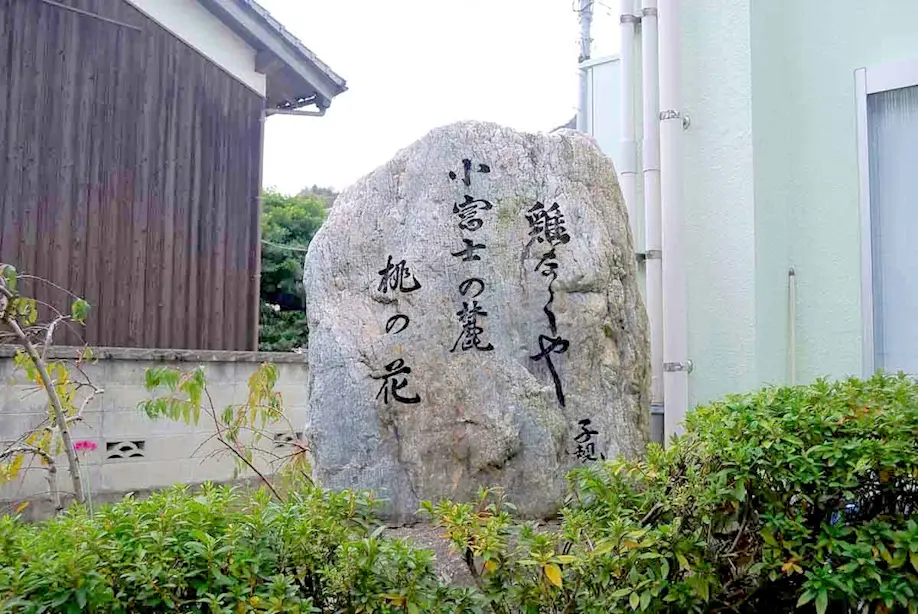 鶏なくや
小富士の麓
桃の花
子規